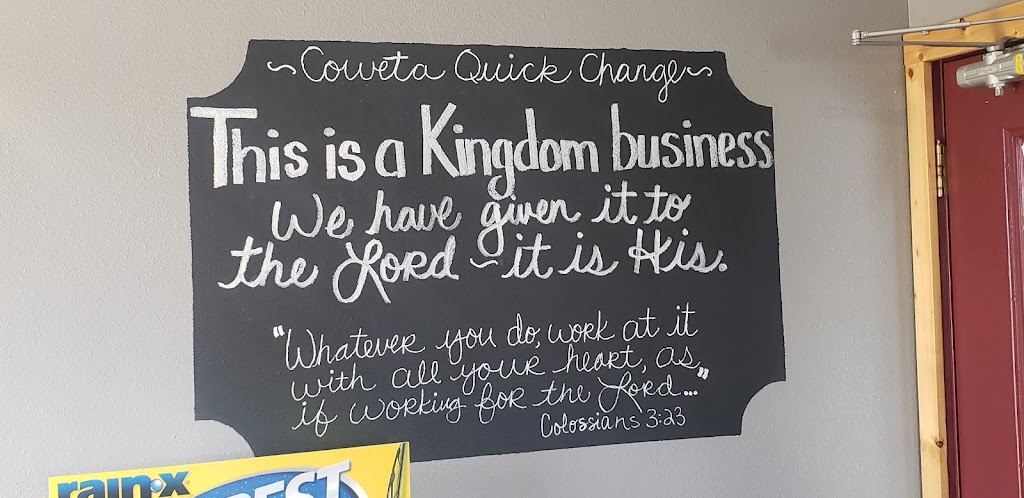 ~Coweta Quick Change~
This is a Kingdom business
We have given it to
the Lord ~ it is His.
"Whatever you do, work at it
with all your heart, as
if working for the Lord..."
Colossians 3:23
rain-x
BEST